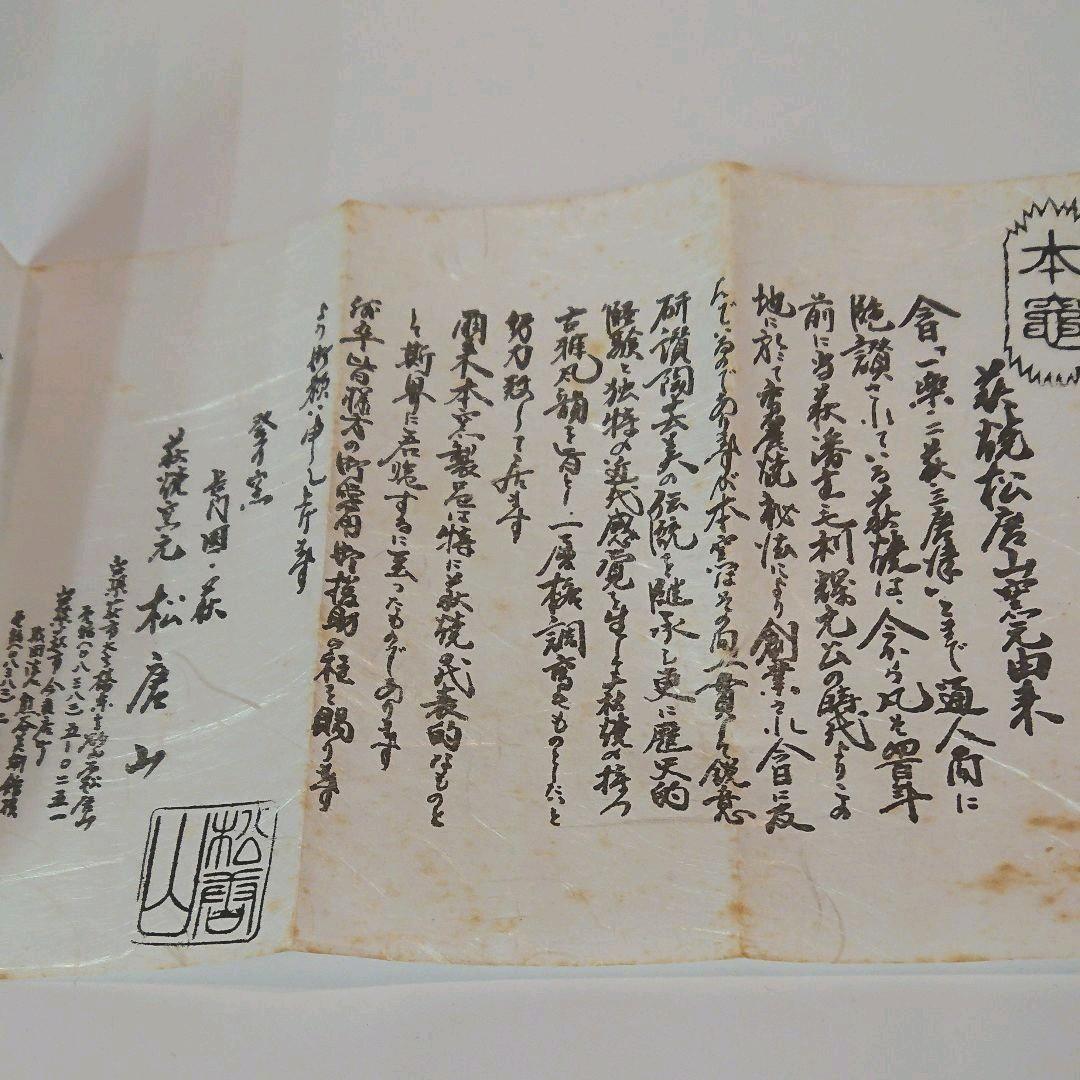 本竈
萩焼松唐山窯元由来
今日で一楽・二萩・三唐津いとまで通人間に
賞讃されている萩焼は、今から凡そ四百年
前に当萩藩主毛利輝元公の時代よりこの
地に於て高麗焼秘法により創業され今日に及
んでゐるのでありますが本窯はその間一貫して鋭意
研讃陶芸美の伝統を継承し更に歴史的
経験と独特の近代感覚を生かして萩焼の持つ
古雅風韻を旨とし一層格調高きものとしたいと
努力致して居ます
爾来本窯製品は特に萩焼の代表的なものと
して斯界に君臨するに至ったものであります
何卒皆様方の御愛用御援助の程を賜ります
よう御願い申し上げます
登り窯
長門国・萩
萩焼窯元 松唐山
松唐山